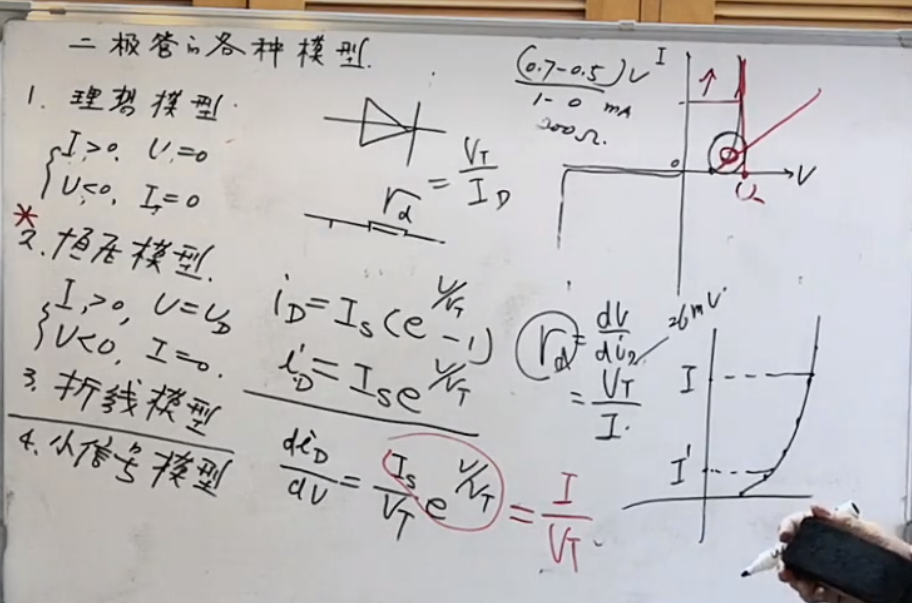 二极管的各种模型.
1. 理想模型.
I>0, U=0
U<0, I=0
*
2. 恒压模型.
I>0, U=U_D
U<0, I=0.
3. 折线模型
4. 小信号模型
r_d = V_T / I_D
i_D = I_s (e^{U/V_T} - 1)
i_D = I_s e^{U/V_T}
di_D / dU = I_s / V_T e^{U/V_T} = I / V_T
(0.7-0.5) V / 1-0 mA
200Ω.
I
0
V
r_d = dU / di_D
26mV
= V_T / I.
I
I'